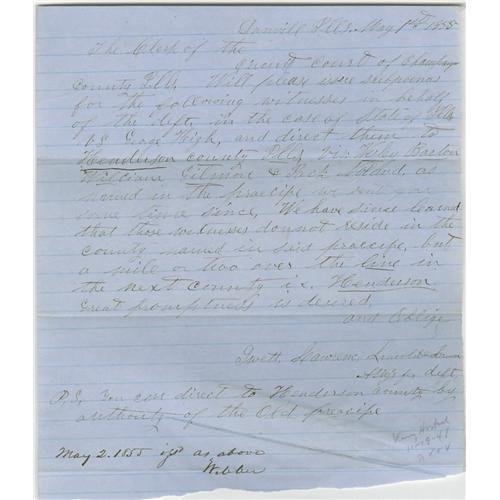 Danvill Ills. May 1st 1855
The Clerk of the
Circuit Court of Champaign
County Ills. Will please issue subpoenas
for the following witnesses in behalf
of the deft. in the case of State of Ills
vs George High, and direct them to
Henderson county Ills, viz: Wiley
William Gilmore & as
named in the praecipe we sent you
some time since, We have since learned
that those witnesses do not reside in the
county named in said praecipe, but
a mile or two over the line in
the next county i.e. Henderson
Great promptness is desired,
and Oblige
Swett, Lawrence, Lincoln &
Attys for deft,
P.S. You can direct to Henderson county by
authority of the Old praecipe
May 2. 1855 as above
Webber